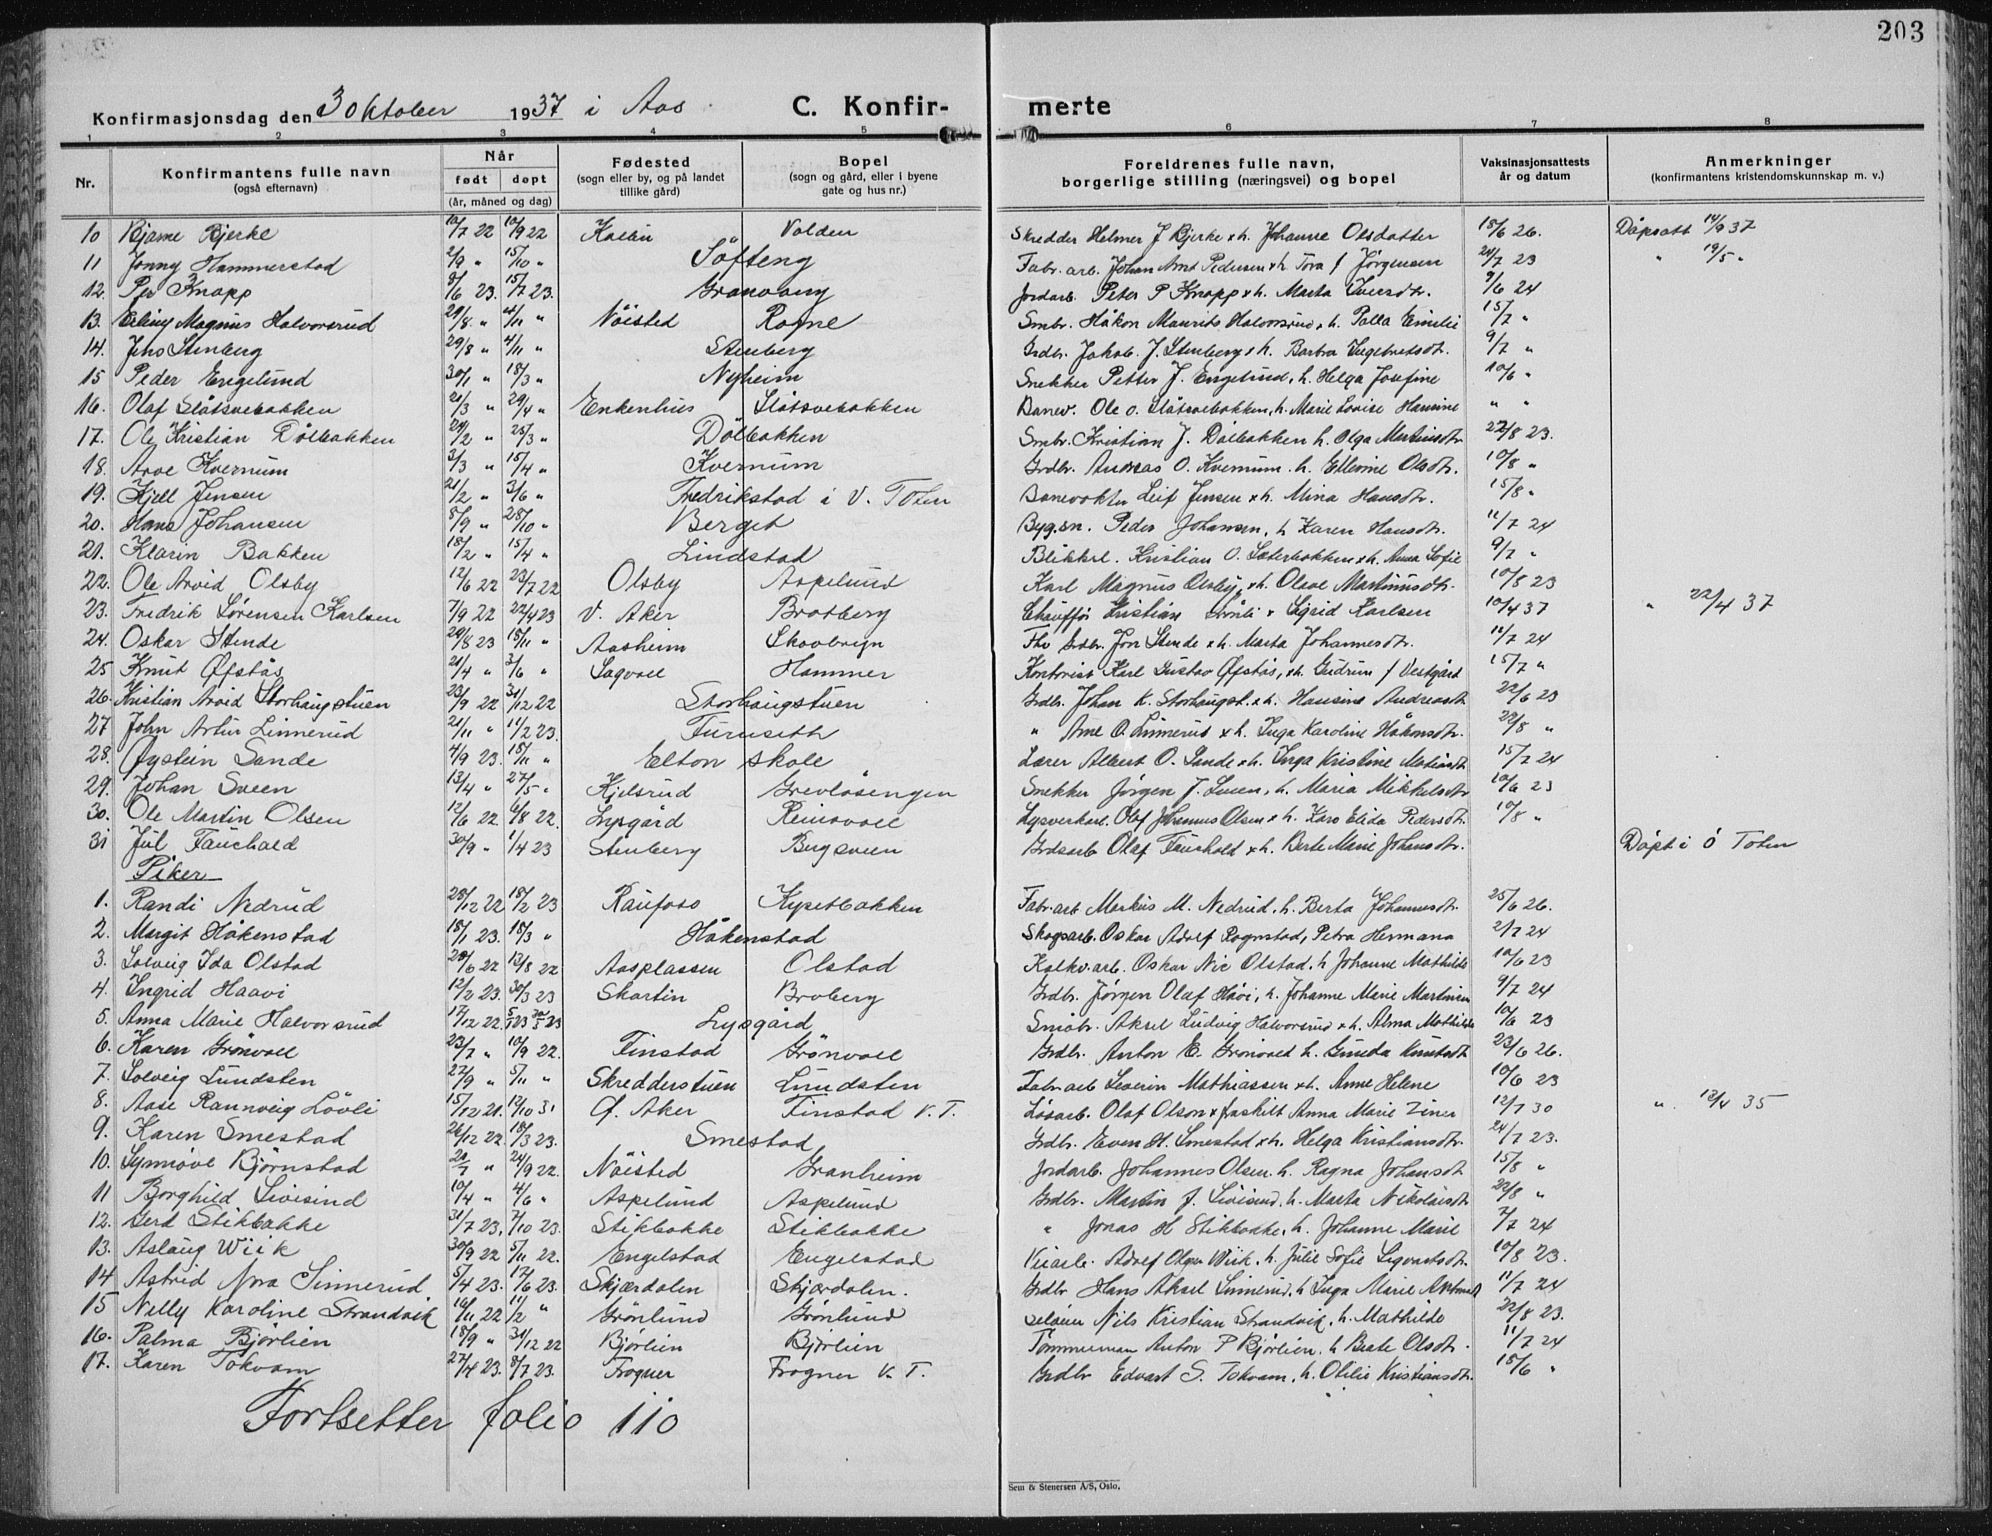 203
Konfirmasjonsdag den 3 oktober 1937 i Aas. C. Konfirmerte
1 2 3 4 5 6 7 8
Nr. Konfirmantens fulle navn (også efternavn) Når født døpt (år, måned og dag) Fødested (sogn eller by, og på landet tillike gård) Bopel (sogn og gård, eller i byene gate og hus nr.) Foreldrenes fulle navn, borgerlige stilling (næringsvei) og bopel Vaksinasjonsattests år og datum Anmerkninger (konfirmantens kristendomskunnskap m. v.)
10 Bjarne Bjerke 10/7 22 10/9 22 Kolbu Volden Skredder Helmer J Bjerke x h. Johanne Olsdatter 15/6 26. Dåpsatt 14/9 37
11 Jonny Hammerstad 2/9 " 15/10 " Söfteng Fabr. arb. Johan Arnt Pedersen x h Tora f Jörgensen 24/7 23 " 19/5 "
12. Per Knapp 9/6 23. 15/7 23. Granberg Jordarb. Peter P Knapp x h. Marta Iversdtr. 9/6 24
13. Erling Magnus Halvorsrud 29/8 " 4/11 " Nöisted Rogne Smbr. Håkon Maurits Halvorsrud x h. Palla Emilie 15/7 "
14. Jens Stenberg 29/8 " 4/11 " Stenberg Grdbr. Jakob J. Stenberg x h. Barbra Ingebretsdt. 9/7 "
15 Peder Engelund 30/1 " 18/3 " Nyheim Snekker Petter J. Engelund, h. Helga Josefine 10/6 "
16. Olaf Slåtsvebakken 21/3 " 29/4 " Enkenhus Slåtsvebakken Banev. Ole O. Slåtsvebakken, h. Marie Lovise Hansine " "
17. Ole Kristian Dålbakken 24/2 " 25/3 " Dölbakken Smbr. Kristian J. Dålbakken h. Olga Martinsdtr 22/8 23.
18. Arve Kvernum 3/3 " 15/4 " Kvernum Grdbr. Andreas O. Kvernum. h. Ellevine Olsdtr. 10/8 "
19. Kjell Jensen 21/2 " 3/6 " Fredrikstad i V. Toten Banevokter Leif Jensen x h. Mina Hansdtr. 15/8 "
20. Hans Johansen 8/9 " 28/10 " Berget Byg.sn. Peder Johansen, h Karen Hansdtr. 11/7 24
21. Klarin Bakken 18/2 " 15/4 " Lindstad Blikksl. Kristian O. Sæterbakken x h. Anna Sofie 9/7 "
22. Ole Arvid Olsby 12/6 22 23/7 22 Olsby Aspelund Karl Magnus Olsby, x h. Olave Martinusdtr. 10/8 23
23. Fredrik Sörensen Karlsen 7/9 22 22/4 23 V. Aker Bratberg Chauffør Kristian x Sigrid Karlsen 10/4 37 " 22/4 37
24. Oskar Stende 29/8 23 18/11 " Aasheim Skovbryn Grdbr. Jon Stende x h. Marta Johannesdtr. 11/7 24
25 Knut Øfstås 21/4 " 3/6 " Sagvoll Hammer Kontorist Karl Gustav Øfstås, x h. Gudrun f Vestgård 15/7 "
26. Kristian Arvid Storhaugstuen 23/9 22 31/12 22 Storhaugstuen Grdbr. Johan K. Storhaugst. x h. Hansine Andreasdt. 22/6 23
27 John Artur Linnerud 21/11 " 11/2 23. Furuseth " Arne O. Linnerud x h. Inga Karoline Håkensdtr. 22/8 "
28. Øystein Sande 4/9 23. 18/11 " Elton skole Lærer Albert O. Sande x h. Inga Kristine 15/7 24
29. Johan Sveen 13/4 " 27/5 " Kjelsrud Grevlösengen Snekker Jörgen J. Sveen, h. Maria Mikkelsdtr 10/6 23
30. Ole Martin Olsen 12/6 22. 6/8 22. Lysgård Reinsvoll Lysverkarb. Olaf Johannes Olsen x h. Karo Elida Pedersdtr. 10/8 "
31 Jul Fauchald 30/9 " 1/4 23 Stenberg Bugsveen Grdsarb Olaf Fauchald x h. Berte Marie Johansdtr. Döpt i Ö Toten
Piker
1. Randi Nedrud 28/12 22 18/2 23 Raufoss Kysetbakken Fabr. arb Markus M. Nedrud, h. Berta Johannesdtr. 25/6 26.
2. Margit Håkenstad 15/1 23. 18/3 " Håkenstad Skogsarb. Oskar Adolf Rognstad, Petra Hermana 2/7 24
3. Solveig Ida Olstad 20/6 22 13/8 22 Aasplassen Olstad Kalkv. arb. Oskar Nic Olstad. h Johanne Mathilde 10/6 23
4. Ingrid Haavi 12/2 23. 30/3 23 Skartin Broberg Grdbr. Jörgen Olaf Håvi, h. Johanne Marie Martinsen 9/7 24
5. Anna Marie Halvorsrud 17/12 22. Lysgård Småbr. Aksel Ludvig Halvorsrud x h. Alma Mathilde 10/6 23
6. Karen Grönvoll 23/7 " 10/9 22. Finstad Grönvoll Grdbr. Anton E. Grönvold h. Gunda Knutsdtr 23/6 26.
7. Solveig Lundsten 27/9 " 5/11 " Skredderstuen Lundsten Fabr. arb Severin Mathiassen x h. Anne Helene 10/6 23
8. Aase Rannveig Lövli 15/12 21. 12/10 31 G. Aker Finstad V. T. Lösarb. Olaf Olson x fraskilt Anna Marie Ziner 12/7 30 " 12/4 35
9. Karen Smestad 26/12 22. 18/3 23. Smestad Grdbr. Even H. Smestad x h. Helga Kristiansdtr. 24/7 23.
10. Synnöve Björnstad 20/7 " 24/9 22. Nöisted Granheim Jordarb. Johannes Olsen. h. Ragna Johansdt. 15/8 "
11 Borghild Sivisind 10/4 " 4/6 " Aspelund Aspelund Grdbr. Martin J. Sivisind, h. Marta Nikolaisdtr. 22/8 "
12. Gerd Stikbakke 31/7 23. 7/10 23. Stikbakke Stikbakke " Jonas H Stikbakke, h. Johanne Marie 7/7 24
13. Aslaug Wiik 30/9 22 5/11 22. Engelstad Engelstad Veiarb. Adolf Olsen Wiik, h. Julie Sofie Sigvartsdtr. 10/8 23.
14 Astrid Nora Sinnerud. 5/4 23. 17/6 23. Skjærdalen Skjærdalen. Grdbr Hans Aksel Sinnerud, h Inga Marie 11/7 24
15 Nelly Karoline Strandvik 16/11 22 11/2 " Grönlund Grönlund Nils Kristian Strandvik, h. Mathilde 22/8 23.
16. Palma Björlien 18/9 " 31/12 22 Bjørlien Björlien Tömmerman Anton P Björlien. h Beate Olsdtr. 11/7 24
17. Karen Tokvam 27/4 23. 8/7 23. Frogner Frogner V. T. Grdbr Edvart S. Tokvam, h. Otilie Kristiansdt. 15/6 "
Fortsetter folio 110
Sem & Stenersen A/S, Oslo.